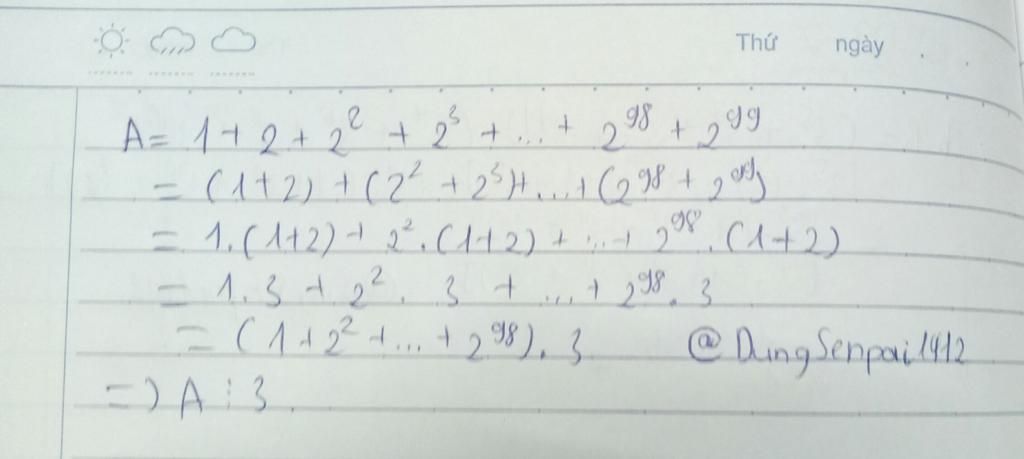 Thứ ngày . .
A = 1 + 2 + 2² + 2³ + ... + 2⁹⁸ + 2⁹⁹
= (1+2) + (2² + 2³) + ... + (2⁹⁸ + 2⁹⁹)
= 1.(1+2) + 2².(1+2) + ... + 2⁹⁸.(1+2)
= 1.3 + 2².3 + ... + 2⁹⁸.3
= (1 + 2² + ... + 2⁹⁸).3 @DungSenpai1412
=> A ⋮ 3.